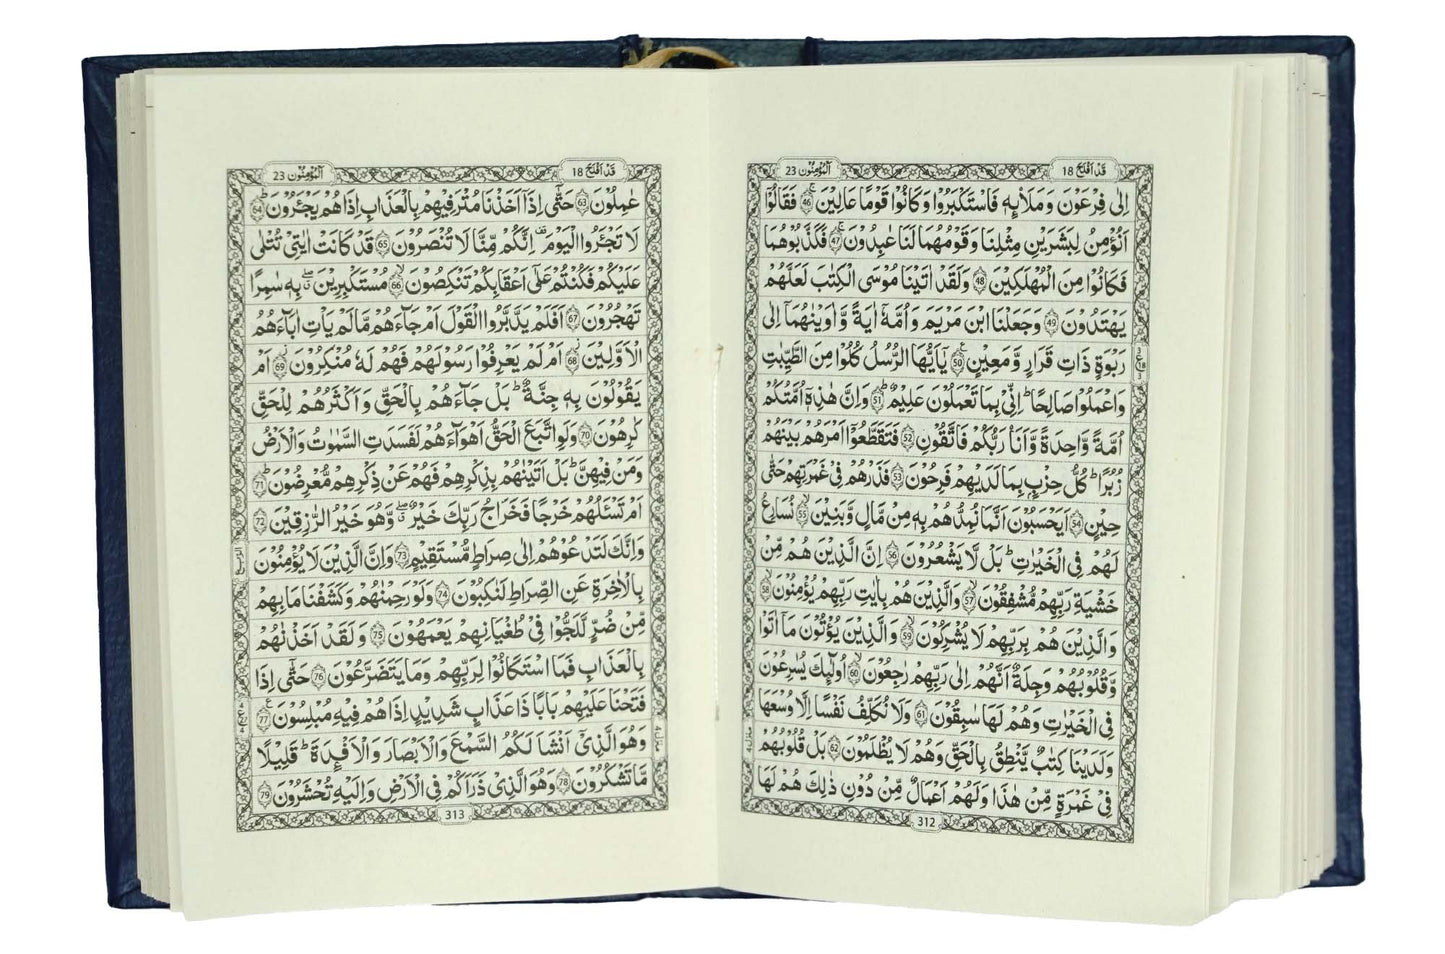 قَدۡ اَفۡلَحَ 18
اَلۡمُؤۡمِنُوۡن 23
اِلٰى فِرۡعَوۡنَ وَ مَلَا۟ئِهٖ فَاسۡتَكۡبَرُوۡا وَ كَانُوۡا قَوۡمًا عَالِيۡنَ ۚ‏ 46 فَقَالُوۡۤا
اَنُؤۡمِنُ لِبَشَرَيۡنِ مِثۡلِنَا وَ قَوۡمُهُمَا لَنَا عٰبِدُوۡنَ ۚ‏ 47 فَكَذَّبُوۡهُمَا
فَكَانُوۡا مِنَ الۡمُهۡلَكِيۡنَ 48 وَلَقَدۡ اٰتَيۡنَا مُوۡسَى الۡكِتٰبَ لَعَلَّهُمۡ
يَهۡتَدُوۡنَ 49 وَ جَعَلۡنَا ابۡنَ مَرۡيَمَ وَ اُمَّهٗۤ اٰيَةً وَّ اٰوَيۡنٰهُمَاۤ اِلٰى
رَبۡوَةٍ ذَاتِ قَرَارٍ وَّ مَعِيۡنٍ 50 يٰۤاَيُّهَا الرُّسُلُ كُلُوۡا مِنَ الطَّيِّبٰتِ
وَاعۡمَلُوۡا صَالِحًا ؕ اِنِّىۡ بِمَا تَعۡمَلُوۡنَ عَلِيۡمٌ ؕ 51 وَاِنَّ هٰذِهٖۤ اُمَّتُكُمۡ
اُمَّةً وَّاحِدَةً وَّ اَنَا رَبُّكُمۡ فَاتَّقُوۡنِ 52 فَتَقَطَّعُوۡۤا اَمۡرَهُمۡ بَيۡنَهُمۡ
زُبُرًا ؕ كُلُّ حِزۡبٍۢ بِمَا لَدَيۡهِمۡ فَرِحُوۡنَ 53 فَذَرۡهُمۡ فِىۡ غَمۡرَتِهِمۡ حَتّٰى
حِيۡنٍ 54 اَيَحۡسَبُوۡنَ اَنَّمَا نُمِدُّهُمۡ بِهٖ مِنۡ مَّالٍ وَّ بَنِيۡنَۙ 55 نُسَارِعُ
لَهُمۡ فِى الۡخَيۡرٰتِ ؕ بَلۡ لَّا يَشۡعُرُوۡنَ 56 اِنَّ الَّذِيۡنَ هُمۡ مِّنۡ
خَشۡيَةِ رَبِّهِمۡ مُّشۡفِقُوۡنَۙ 57 وَالَّذِيۡنَ هُمۡ بِاٰيٰتِ رَبِّهِمۡ يُؤۡمِنُوۡنَۙ 58
وَالَّذِيۡنَ هُمۡ بِرَبِّهِمۡ لَا يُشۡرِكُوۡنَۙ 59 وَالَّذِيۡنَ يُؤۡتُوۡنَ مَاۤ اٰتَوْا
وَّ قُلُوۡبُهُمۡ وَجِلَةٌ اَنَّهُمۡ اِلٰى رَبِّهِمۡ رٰجِعُوۡنَۙ 60 اُولٰٓئِكَ يُسٰرِعُوۡنَ
فِى الۡخَيۡرٰتِ وَهُمۡ لَهَا سٰبِقُوۡنَ 61 وَلَا نُكَلِّفُ نَفۡسًا اِلَّا وُسۡعَهَا
وَلَدَيۡنَا كِتٰبٌ يَّنۡطِقُ بِالۡحَقِّ وَهُمۡ لَا يُظۡلَمُوۡنَ 62 بَلۡ قُلُوۡبُهُمۡ
فِىۡ غَمۡرَةٍ مِّنۡ هٰذَا وَلَهُمۡ اَعۡمَالٌ مِّنۡ دُوۡنِ ذٰلِكَ هُمۡ لَهَا
312
قَدۡ اَفۡلَحَ 18
اَلۡمُؤۡمِنُوۡن 23
عٰمِلُوۡنَ 63 حَتّٰٓى اِذَاۤ اَخَذۡنَا مُتۡرَفِيۡهِمۡ بِالۡعَذَابِ اِذَا هُمۡ يَجۡئَرُوۡنَ ؕ 64
لَا تَجۡئَرُوا الۡيَوۡمَ اِنَّكُمۡ مِّنَّا لَا تُنۡصَرُوۡنَ 65 قَدۡ كَانَتۡ اٰيٰتِىۡ تُتۡلٰى
عَلَيۡكُمۡ فَكُنۡتُمۡ عَلٰٓى اَعۡقَابِكُمۡ تَنۡكِصُوۡنَۙ 66 مُسۡتَكۡبِرِيۡنَ ۖ بِهٖ سٰمِرًا
تَهۡجُرُوۡنَ 67 اَفَلَمۡ يَدَّبَّرُوا الۡقَوۡلَ اَمۡ جَآءَهُمۡ مَّا لَمۡ يَاۡتِ اٰبَآءَهُمُ
الۡاَوَّلِيۡنَ 68 اَمۡ لَمۡ يَعۡرِفُوۡا رَسُوۡلَهُمۡ فَهُمۡ لَهٗ مُنۡكِرُوۡنَ 69 اَمۡ
يَقُوۡلُوۡنَ بِهٖ جِنَّةٌ ؕ بَلۡ جَآءَهُمۡ بِالۡحَقِّ وَاَكۡثَرُهُمۡ لِلۡحَقِّ
كٰرِهُوۡنَ 70 وَلَوِ اتَّبَعَ الۡحَقُّ اَهۡوَآءَهُمۡ لَفَسَدَتِ السَّمٰوٰتُ وَالۡاَرۡضُ
وَمَنۡ فِيۡهِنَّ ؕ بَلۡ اَتَيۡنٰهُمۡ بِذِكۡرِهِمۡ فَهُمۡ عَنۡ ذِكۡرِهِمۡ مُّعۡرِضُوۡنَ ؕ 71
اَمۡ تَسۡئَلُهُمۡ خَرۡجًا فَخَرَاجُ رَبِّكَ خَيۡرٌ ۖ وَّهُوَ خَيۡرُ الرّٰزِقِيۡنَ 72
وَاِنَّكَ لَتَدۡعُوۡهُمۡ اِلٰى صِرَاطٍ مُّسۡتَقِيۡمٍ 73 وَاِنَّ الَّذِيۡنَ لَا يُؤۡمِنُوۡنَ
بِالۡاٰخِرَةِ عَنِ الصِّرَاطِ لَنٰكِبُوۡنَ 74 وَلَوۡ رَحِمۡنٰهُمۡ وَكَشَفۡنَا مَا بِهِمۡ
مِّنۡ ضُرٍّ لَّلَجُّوۡا فِىۡ طُغۡيَانِهِمۡ يَعۡمَهُوۡنَ 75 وَلَقَدۡ اَخَذۡنٰهُمۡ
بِالۡعَذَابِ فَمَا اسۡتَكَانُوۡا لِرَبِّهِمۡ وَمَا يَتَضَرَّعُوۡنَ 76 حَتّٰٓى اِذَا
فَتَحۡنَا عَلَيۡهِمۡ بَابًا ذَا عَذَابٍ شَدِيۡدٍ اِذَا هُمۡ فِيۡهِ مُبۡلِسُوۡنَ 77
وَهُوَ الَّذِىۡۤ اَنۡشَاَ لَكُمُ السَّمۡعَ وَالۡاَبۡصَارَ وَالۡاَفۡئِدَةَ ؕ قَلِيۡلًا
مَّا تَشۡكُرُوۡنَ 78 وَهُوَ الَّذِىۡ ذَرَاَكُمۡ فِى الۡاَرۡضِ وَاِلَيۡهِ تُحۡشَرُوۡنَ 79
313